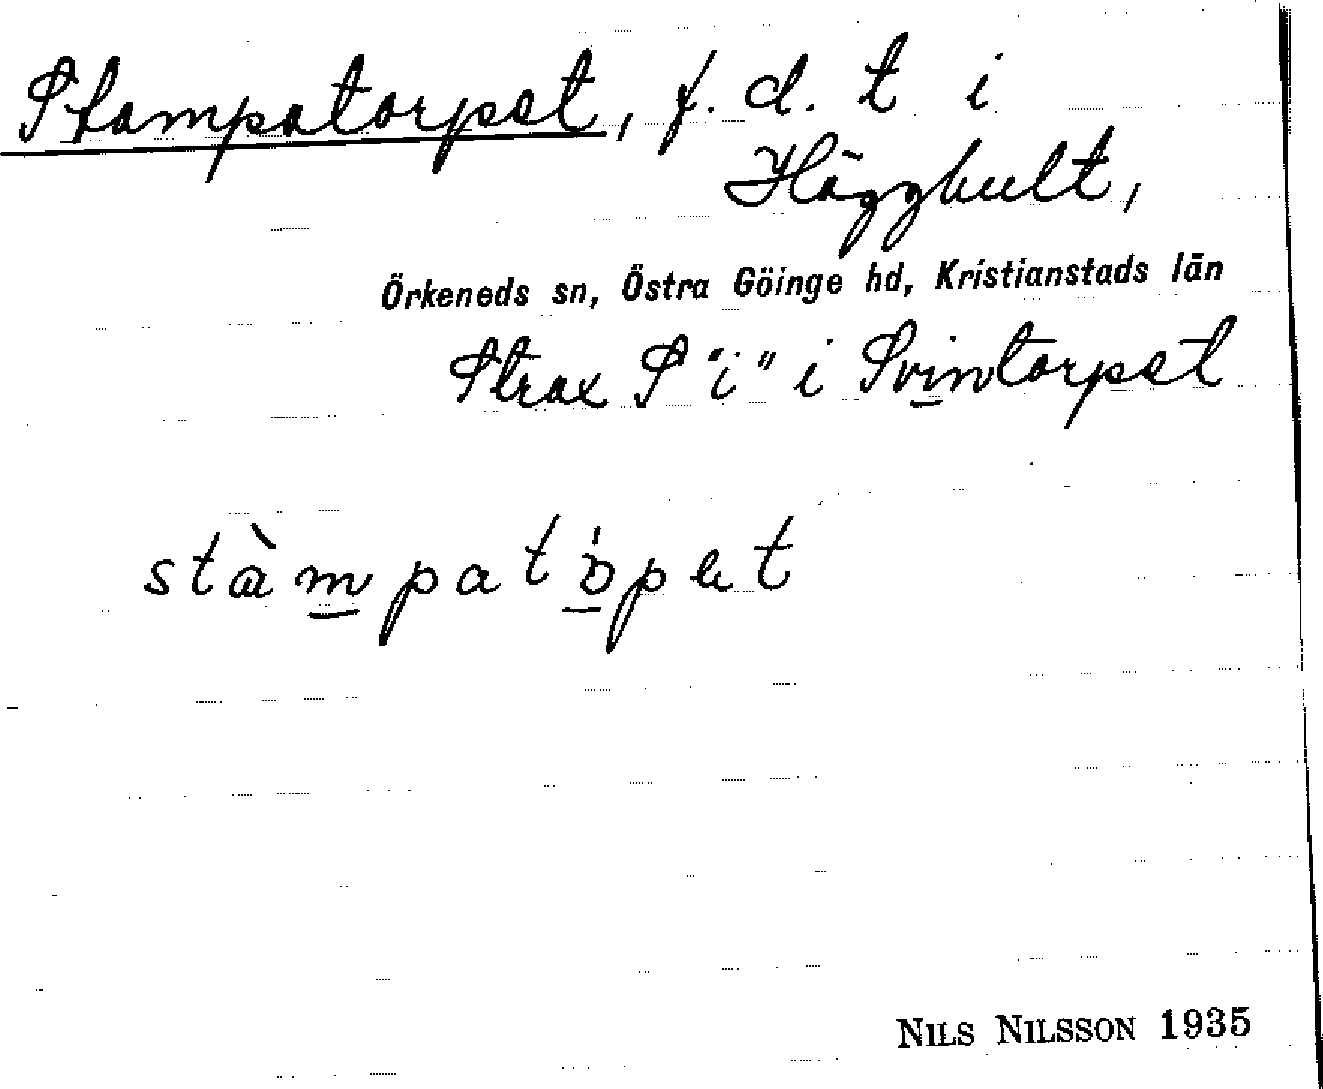 Stampatorpet, f. d. t i
Hägghult,
Örkeneds sn, Östra Göinge hd, Kristianstads län
Strax S "i" i Svintorpet
stàmpatɔ́pet
NILS NILSSON 1935